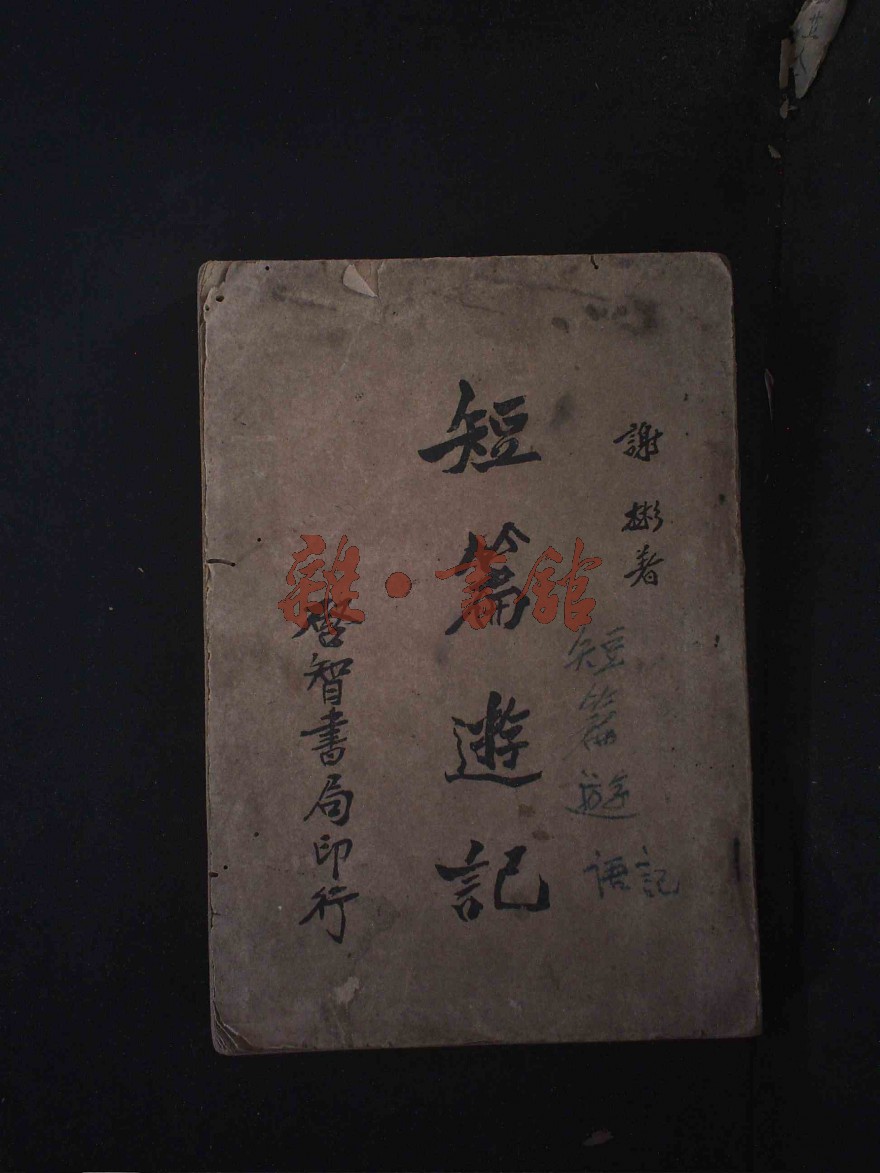 謝彬著
短篇遊記
短篇遊語記
啓智書局印行
雜·書館